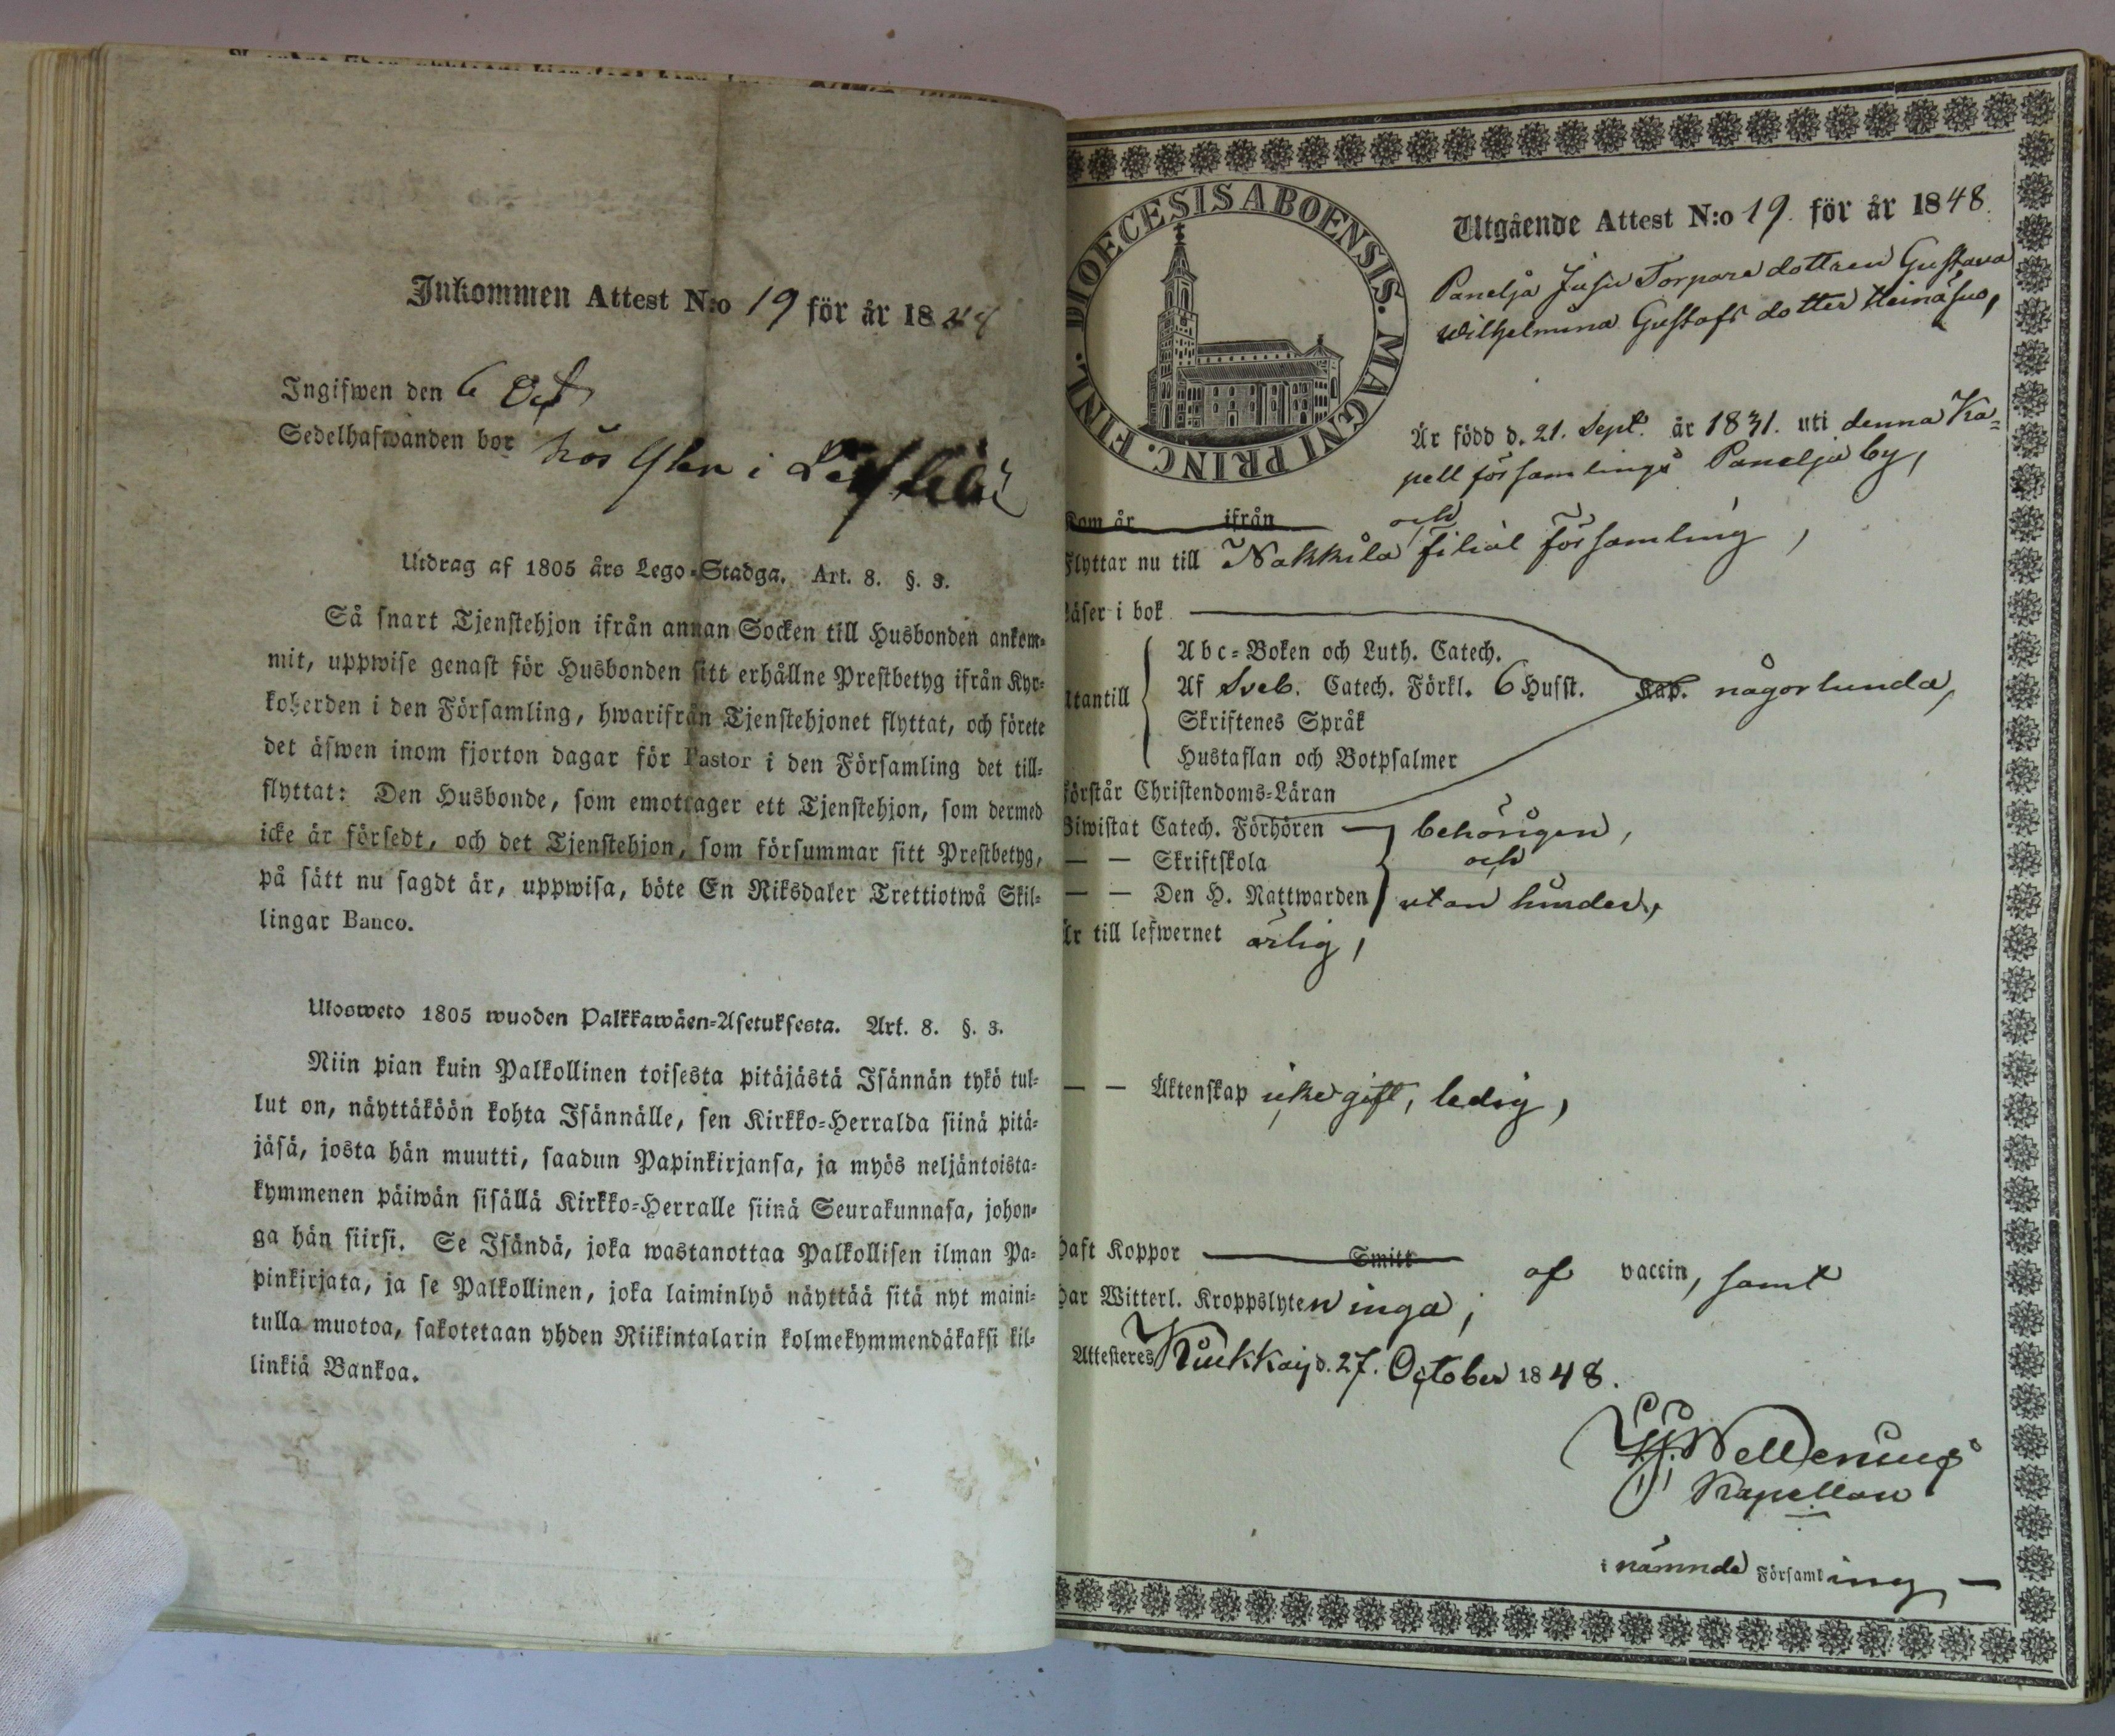 Inkommen Attest N:o 19 för år 1848
Ingifwen den 6 Oct
Sedelhafwanden bor hos i
Utdrag af 1805 års Lego-Stadga. Art. 8. §. 3.
Så snart Tjenstehjon ifrån annan Socken till Husbonden ankom-
mit, uppwise genast för Husbonden sitt erhållne Prestbetyg ifrån Kyr-
koherden i den Församling, hwarifrån Tjenstehjonet flyttat, och förete
det äfwen inom fjorton dagar för Pastor i den Församling det till-
flyttat: Den Husbonde, som emottager ett Tjenstehjon, som dermed
icke är försedt, och det Tjenstehjon, som försummar sitt Prestbetyg,
på sätt nu sagdt är, uppwisa, böte En Riksdaler Trettiotwå Skil-
lingar Banco.
Ulosweto 1805 wuoden Palkkawäen-Asetuksesta. Art. 8. §. 3.
Niin pian kuin Palkollinen toisesta pitäjästä Isännän tykö tul-
lut on, näyttäköön kohta Isännälle, sen Kirkko-Herralda siinä pitä-
jäsä, josta hän muutti, saadun Papinkirjansa, ja myös neljäntoista-
kymmenen päiwän sisällä Kirkko-Herralle siinä Seurakunnasa, johon-
ga hän siirsi. Se Isändä, joka wastanottaa Palkollisen ilman Pa-
pinkirjata, ja se Palkollinen, joka laiminlyö näyttää sitä nyt maini-
tulla muotoa, sakotetaan yhden Riikintalarin kolmekymmendäkaksi kil-
linkiä Bankoa.
DIOECESIS ABOENSIS. MAGNI PRINC. FINL.
Utgående Attest N:o 19. för år 1848.
Panelja Jusu Torpare dottren Gustava
Wilhelmina Gustafs dotter Heinäsuo,
Är född d. 21. Sept. år 1831. uti denna Ka-
pell församlings Panelja by,
Kom år ifrån
och
Flyttar nu till Nakkila filial församling,
Läser i bok
Utantill
Abc-Boken och Luth. Catech.
Af Sveb. Catech. Förkl. 6 Hufst. Kap. någorlunda,
Skriftenes Språk
Hustaflan och Botpsalmer
Förstår Christendoms-Läran
Biwistat Catech. Förhören behörigen,
— — Skriftskola och
— — Den H. Nattwarden utan hinder,
Är till lefwernet ärlig,
— — Äktenskap icke gift, ledig,
Haft Koppor Smitt af vaccin, samt
Har Witterl. Kroppslyten inga;
Attesteres d. 27. October 1848.
Kapellan
i nämnde Församling